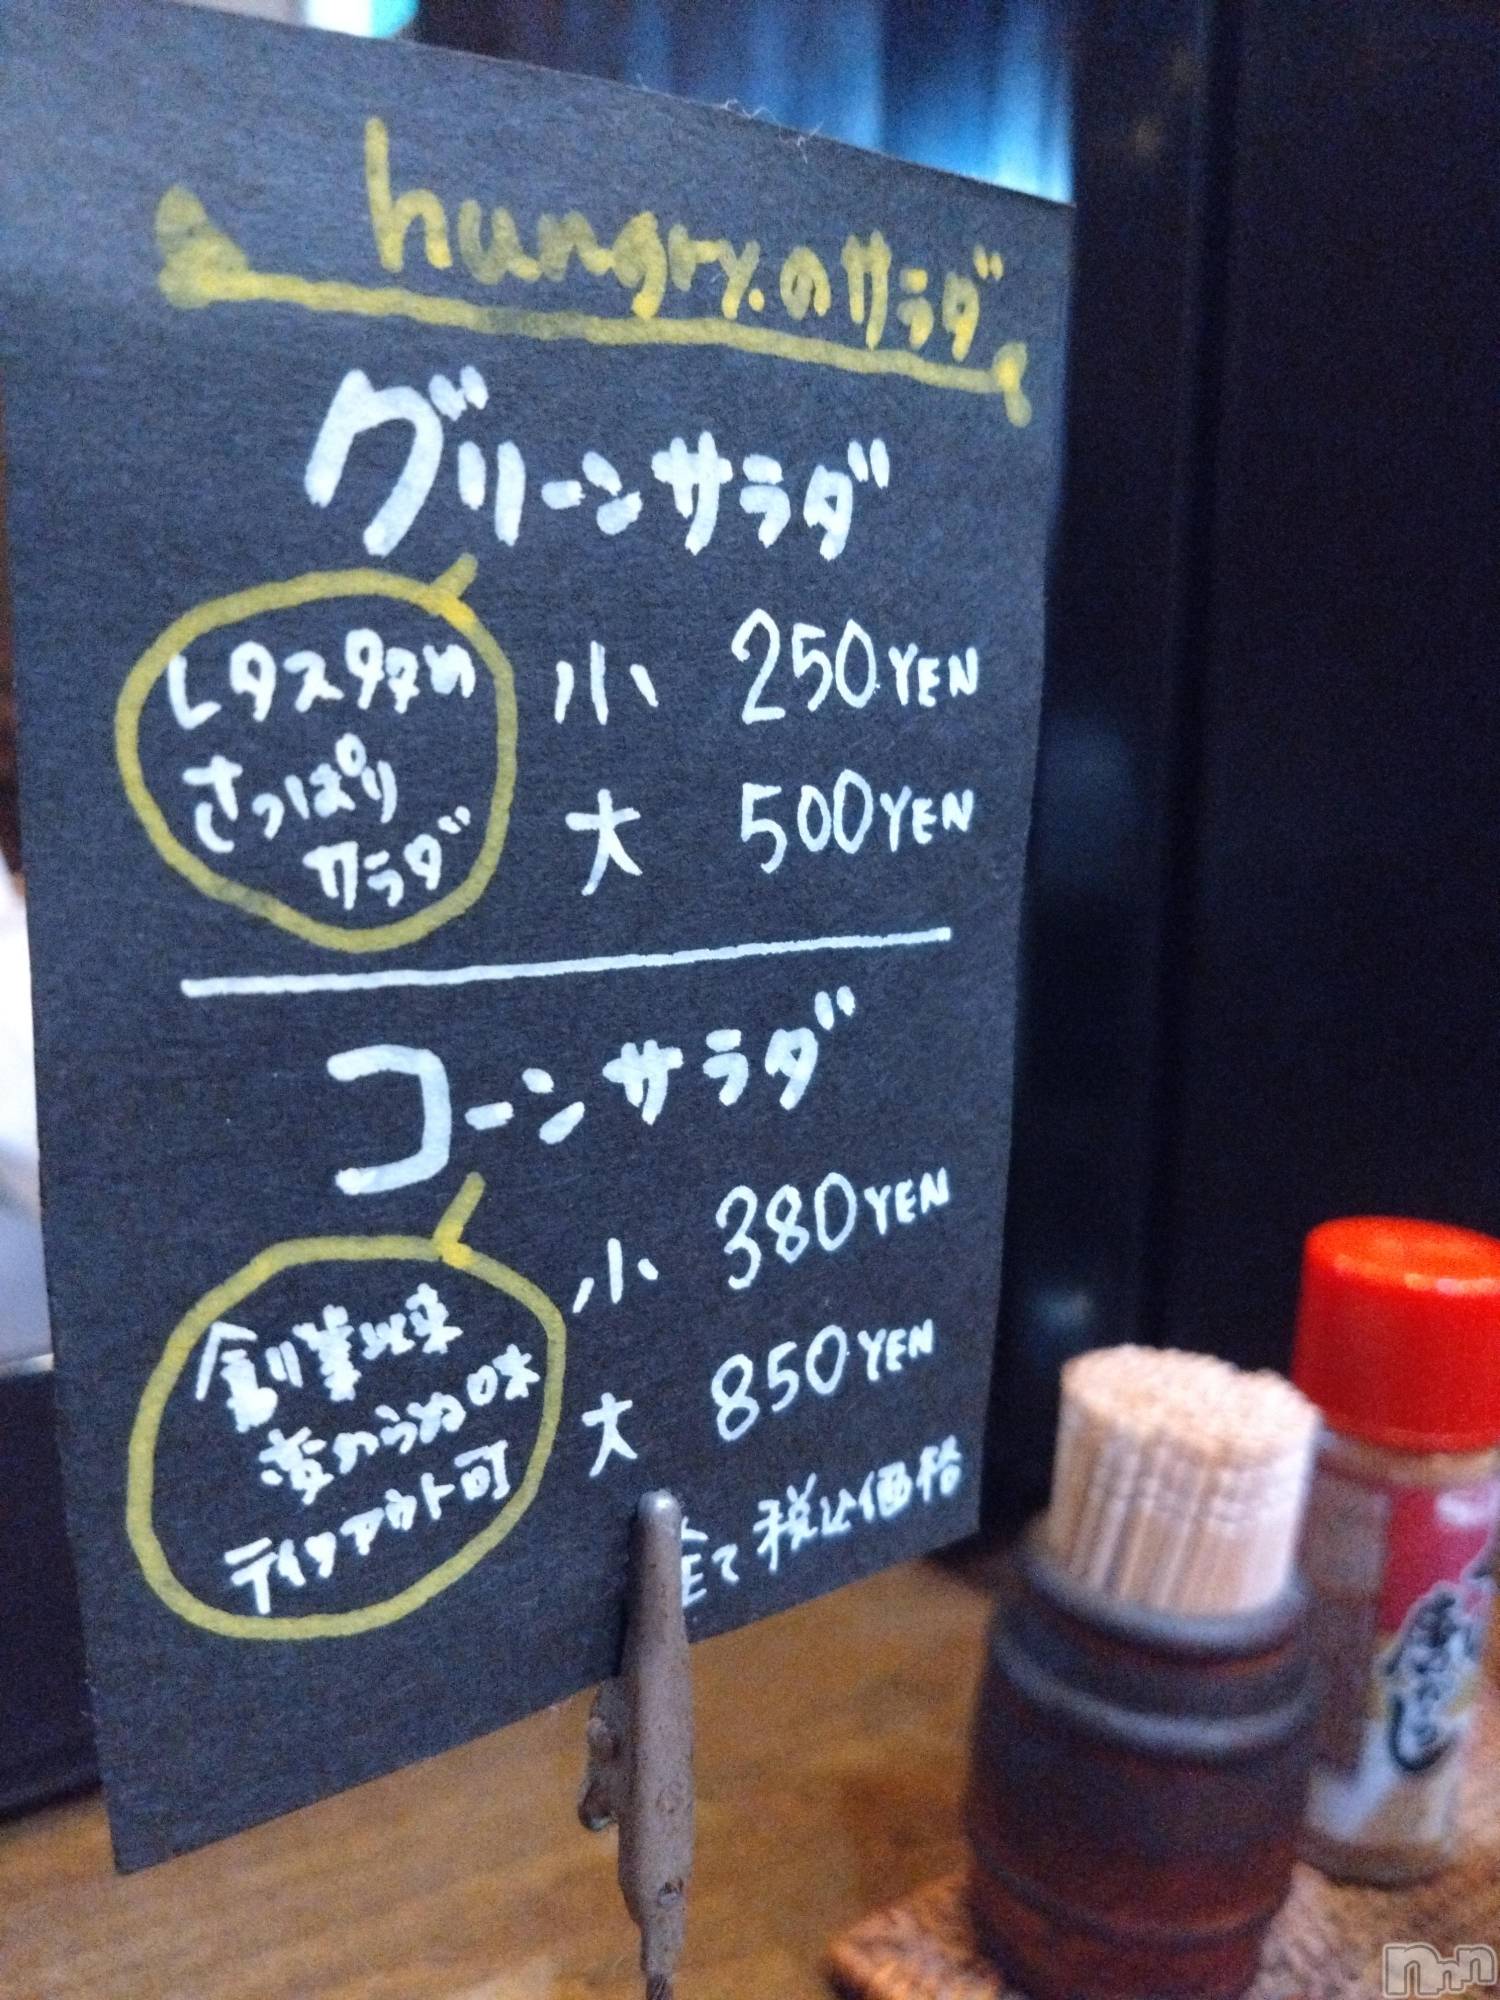 hungry.のサラダ
グリーンサラダ
レタス多め
さっぱり
サラダ
小 250YEN
大 500YEN
コーンサラダ
創業以来
変わらぬ味
テイクアウト可
小 380YEN
大 850YEN
全て税込価格